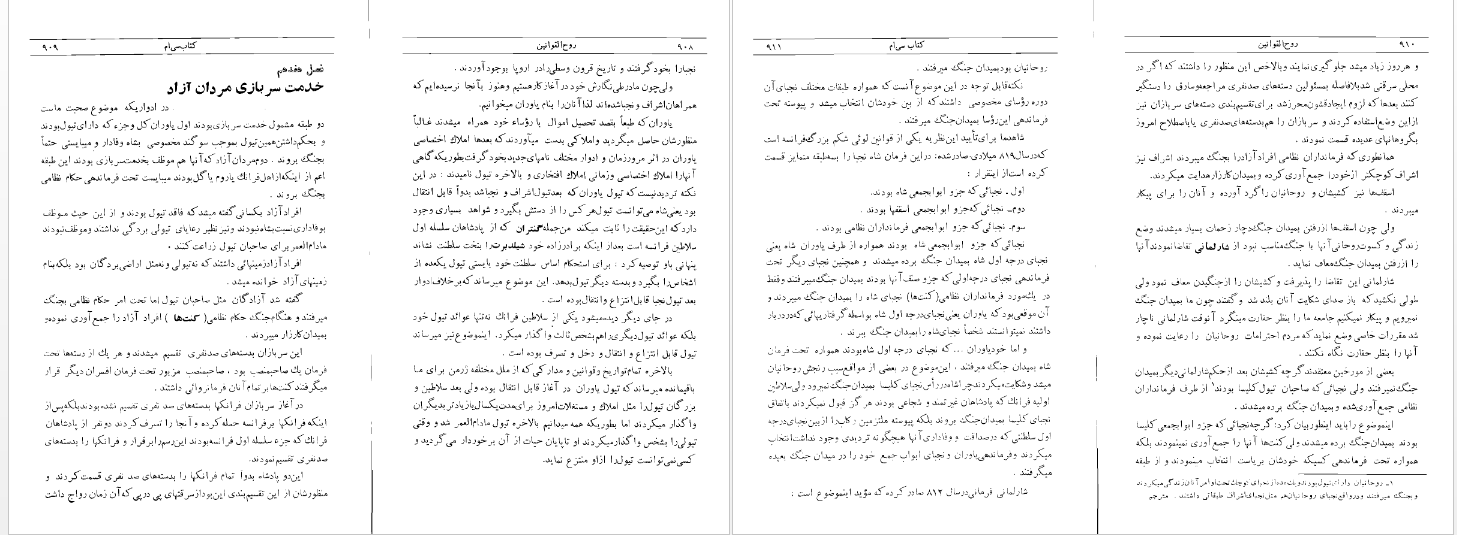 ۹۰۸
روح‌القوانین
نجبارا بخود گرفتند و تاریخ قرون وسطی را در اروپا بوجود آوردند .
ولی چون ما در طی نگارش خود در آغاز کار هستیم وهنوز بآنجا نرسیده‌ایم که
همراهان اشراف و نجبا شده‌اند لذا آنان را بنام یاوران میخوانیم .
یاوران که طبعاً بقصد تحصیل اموال با رؤساء خود همراه میشدند غالباً
منظورشان حاصل میگردید واملاکی بدست میآوردند که بعدها املاک اختصاصی
یاوران در اثر مرور زمان و ادوار مختلف نامهای جدید بخود گرفت بطوریکه گاهی
آنها را املاک اختصاصی و زمانی املاک افتخاری و بالاخره تیول نامیدند : در این
نکته تردید نیست که تیول یاوران که بعد تیول اشراف و نجبا شد بدواً قابل انتقال
بود یعنی شاه می‌توانست تیول هر کس را از دستش بگیرد و شواهد بسیاری وجود
دارد که این حقیقت را ثابت میکند من‌جمله گنتران که از پادشاهان سلسله اول
سلاطین فرانسه است بعد از اینکه برادرزاده خود شیلدبرت را بتخت سلطنت نشاند
پنهانی باو توصیه کرد : برای استحکام اساس سلطنت خود بایستی تیول یکعده از
اشخاص را بگیرد و بدسته دیگر تیول بدهد. این موضوع میرساند که بر خلاف ادوار
بعد تیول نجبا قابل انتزاع و انتقال بوده است .
در جای دیگر دیده میشود یکی از سلاطین فرانک نه‌تنها عوائد تیول خود
بلکه عوائد تیول دیگری را هم بشخص ثالث واگذار میکرد. اینموضوع نیز میرساند
تیول قابل انتزاع و انتقال و دخل و تصرف بوده است .
بالاخره تمام تواریخ و قوانین و مدارکی که از ملل مختلفه ژرمن برای ما
باقیمانده میرساند که تیول یاوران در آغاز قابل انتقال بوده ولی بعد سلاطین و
بزرگان تیول را مثل املاک و مستغلات امروز برای مدت یکسال یا زیادتر بدیگران
واگذار میکردند اما بطوریکه همه میدانیم بالاخره تیول مادام‌العمر شد و وقتی
تیولی را بشخص واگذار میکردند او تا پایان حیات از آن برخوردار می‌گردید و
کسی نمی‌توانست تیول را از او منتزع نماید.
۹۰۹
کتاب سی‌ام
فصل هفدهم
خدمت سربازی مردان آزاد
در ادواریکه موضوع صحبت ماست
دو طبقه مشمول خدمت سربازی بودند اول یاوران کل و جزء که دارای تیول بودند
و بحکم داشتن همین تیول بموجب سوگند مخصوصی بشاه وفادار و میبایستی حتماً
بجنگ بروند . دوم مردان آزاد که آنها هم موظف بخدمت سربازی بودند این طبقه
اعم از اینکه از اهل فرانک یا روم یا گل بودند میبایست تحت فرماندهی حکام نظامی
بجنگ بروند .
افراد آزاد بکسانی گفته میشد که فاقد تیول بودند و از این حیث موظف
بوفاداری نسبت بشاه نبودند و نیز نظیر رعایای تیولی بردگی نداشتند و موظف نبودند
مادام‌العمر برای صاحبان تیول زراعت کنند .
افراد آزاد زمینهائی داشتند که نه تیولی و نه مثل اراضی بردگان بود بلکه بنام
زمینهای آزاد خوانده میشد .
گفته شد آزادگان مثل صاحبان تیول اما تحت امر حکام نظامی بجنگ
میرفتند و هنگام جنگ حکام نظامی ( کنت‌ها ) افراد آزاد را جمع‌آوری نموده و
بمیدان کارزار میبردند .
این سربازان بدسته‌های صد نفری تقسیم میشدند و هر یک از دسته‌ها تحت
فرمان یک صاحبمنصب بود ، صاحبمنصب مزبور تحت فرمان افسران دیگر قرار
میگرفتند کنت‌ها بر تمام آنان فرمانروائی داشتند .
در آغاز سربازان فرانکها بدسته‌های صد نفری تقسیم نشده بودند بلکه پس از
اینکه فرانکها بر فرانسه حمله کرده و آنجا را تصرف کردند دو نفر از پادشاهان
فرانک که جزء سلسله اول فرانسه بودند این رسم را برقرار و فرانکها را بدسته‌های
صد نفری تقسیم نمودند.
این دو پادشاه بدواً تمام فرانکها را بدسته‌های صد نفری قسمت کردند و
منظورشان از این تقسیم‌بندی این بود از سرقتهای پی در پی که آن زمان رواج داشت
۹۱۰
روح‌القوانین
و هر روز زیاد میشد جلوگیری نمایند و بالاخص این منظور را داشتند که اگر در
محلی سرقتی شد بلافاصله بمسئولین دسته‌های صد نفری مراجعه و سارق را دستگیر
کنند بعدها که لزوم ایجاد قشون محرز شد برای تقسیم‌بندی دسته‌های سربازان نیز
از این وضع استفاده کردند و سربازان را هم بدسته‌های صد نفری یا باصطلاح امروز
بگروهانهای عدیده قسمت نمودند .
همانطوری که فرمانداران نظامی افراد آزاد را بجنگ میبردند اشراف نیز
اشراف کوچکتر از خود را جمع‌آوری کرده و بمیدان کارزار هدایت میکردند.
اسقف‌ها نیز کشیشان و روحانیان را گرد آورده و آنان را برای پیکار
میبردند .
ولی چون اسقف‌ها از رفتن بمیدان جنگ دچار زحمات بسیار میشدند وضع
زندگی و کسوت روحانی آنها با جنگ مناسب نبود از شارلمانی تقاضا نمودند آنها
را از رفتن بمیدان جنگ معاف نماید .
شارلمانی این تقاضا را پذیرفت و کشیشان را از جنگیدن معاف نمود ولی
طولی نکشید که باز صدای شکایت آنان بلند شد و گفتند چون ما بمیدان جنگ
نمیرویم و پیکار نمیکنیم جامعه ما را بنظر حقارت مینگرد آنوقت شارلمانی ناچار
شد مقررات خاصی وضع نماید که مردم احترامات روحانیان را رعایت نموده و
آنها را بنظر حقارت نگاه نکنند .
بعضی از مورخین معتقدند گرچه کشیشان بعد از حکم شارلمانی دیگر بمیدان
جنگ نمیرفتند ولی نجبائی که صاحبان تیول کلیسا بودند۱ از طرف فرمانداران
نظامی جمع‌آوری شده و بمیدان جنگ برده میشدند .
اینموضوع را باید اینطور بیان کرد: گرچه نجبائی که جزو ابوابجمعی کلیسا
بودند بمیدان جنگ برده میشدند ولی کنت‌ها آنها را جمع‌آوری نمینمودند بلکه
همواره تحت فرماندهی کسیکه خودشان بریاست انتخاب مینمودند و از طبقه
۹۱۱
کتاب سی‌ام
روحانیان بود بمیدان جنگ میرفتند .
نکته قابل توجه در این موضوع آنست که همواره طبقات مختلف نجبای آن
دوره رؤسای مخصوصی داشتند که از بین خودشان انتخاب میشد و پیوسته تحت
فرماندهی این رؤسا بمیدان جنگ میرفتند .
شاهد ما برای تأیید این نظر به یکی از قوانین لوئی شکم بزرگ فرانسه است
که در سال ۸۱۹ میلادی صادر شده: در این فرمان شاه نجبا را بسه طبقه متمایز قسمت
کرده است از اینقرار :
اول ـ نجبائی که جزو ابوابجمعی شاه بودند.
دوم ـ نجبائی که جزو ابوابجمعی اسقفها بودند .
سوم ـ نجبائی که جزو ابوابجمعی فرمانداران نظامی بودند .
نجبائی که جزو ابوابجمعی شاه بودند همواره از طرف یاوران شاه یعنی
نجبای درجه اول شاه بمیدان جنگ برده میشدند و همچنین نجبای دیگر تحت
فرماندهی نجبای درجه اولی که جزو صنف آنها بودند بمیدان جنگ میرفتند و فقط
در یک مورد فرمانداران نظامی (کنت‌ها) نجبای شاه را بمیدان جنگ میبردند و
آن موقعی بود که یاوران یعنی نجبای درجه اول شاه بواسطه گرفتاریهائی که در دربار
داشتند نمیتوانستند شخصاً نجبای شاه را بمیدان جنگ ببرند .
و اما خود یاوران ... که نجبای درجه اول شاه بودند همواره تحت فرمان
شاه بمیدان جنگ میرفتند ، این موضوع در بعضی از مواقع سبب رنجش روحانیان
میشد و شکایت میکردند چرا شاه در رأس نجبای کلیسا بمیدان جنگ نمیرود ولی سلاطین
اولیه فرانک که پادشاهان غیرتمند و شجاعی بودند هرگز قبول نمیکردند باتفاق
نجبای کلیسا بمیدان جنگ بروند بلکه پیوسته ملتزمین رکاب را از بین نجبای درجه
اول سلطنتی که در صداقت و وفاداری آنها هیچگونه تردیدی وجود نداشت انتخاب
میکردند و فرماندهی یاوران و نجبای ابواب جمع خود را در میدان جنگ بعهده
میگرفتند .
شارلمانی فرمانی در سال ۸۱۲ صادر کرده که مؤید اینموضوع است :